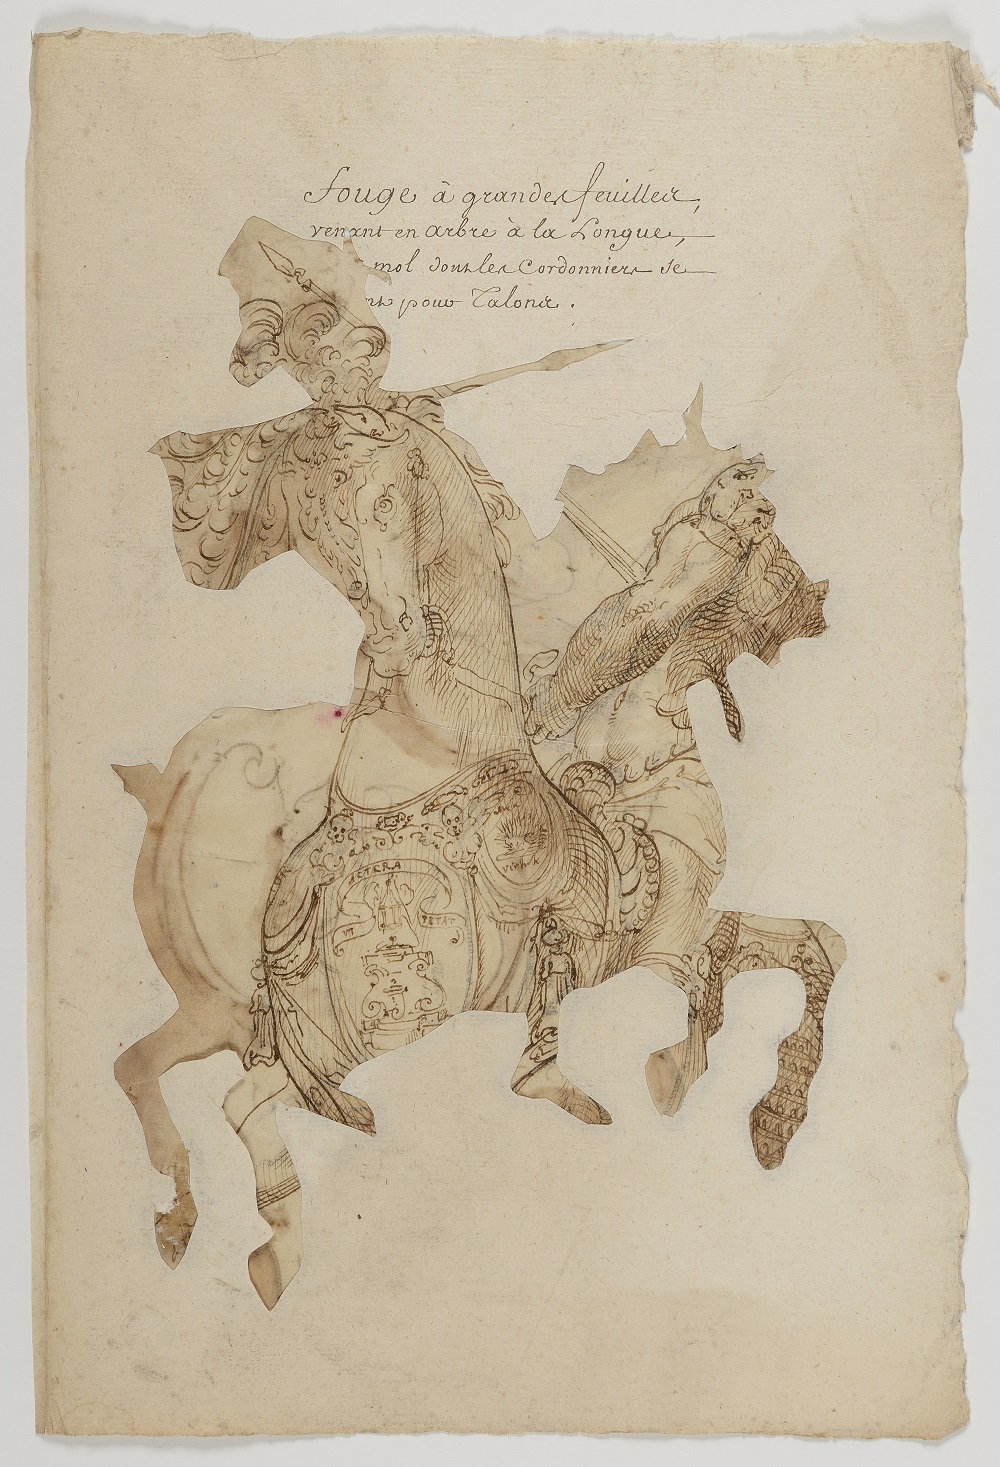 fouge à grandes feuilles,
venant en arbre à la Longue,
mol dont les Cordonniers se
nt pour Talons.
AETERA
PETAT